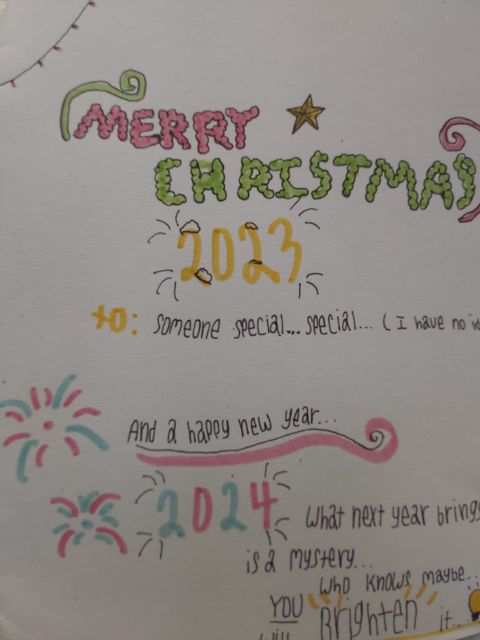 MERRY
CHRISTMAS
2023
to: someone special... special... (I have no
And a happy new year...
2024
What next year brings
is a mystery...
who knows maybe..
YOU Brighten it..
will